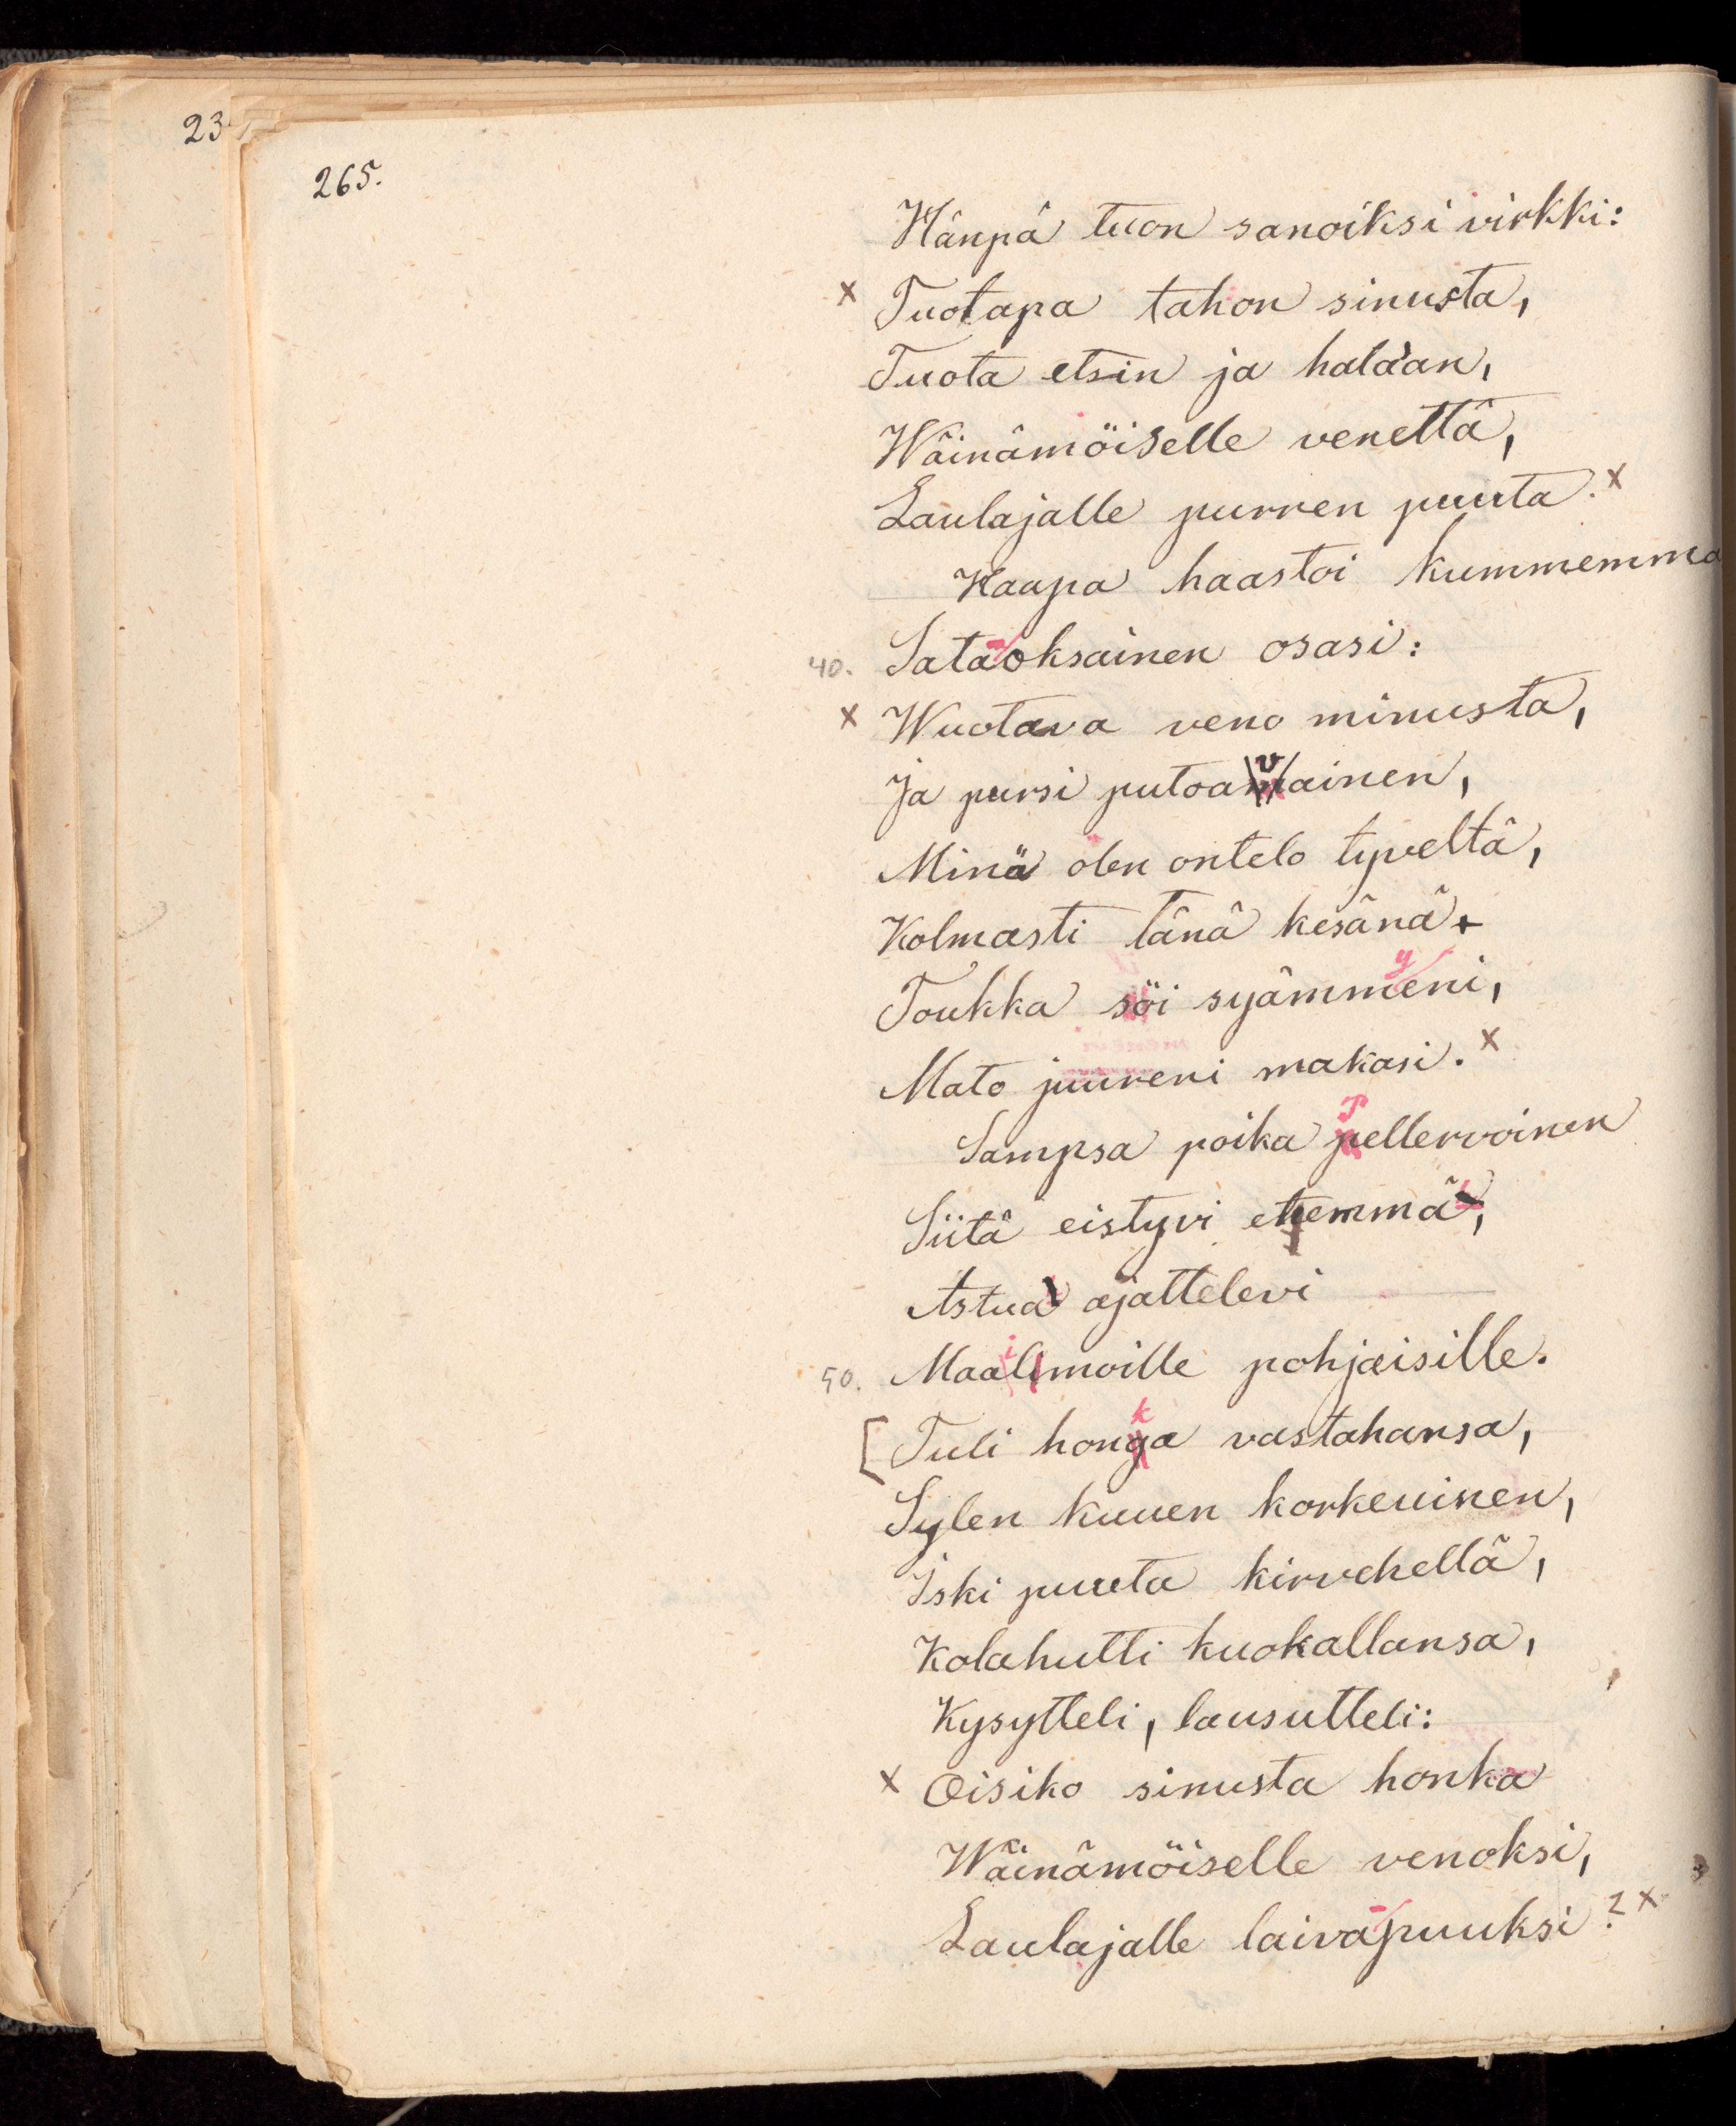 23
265.
Hänpä tuon sanoiksi virkki:
x Tuotapa tahon sinusta,
Tuota etsin ja halaan,
Wäinämöiselle venettä,
Laulajalle purren puuta. x
Haapa haastoi kummemma
40. Sata-oksainen osasi:
x Wuotava veno minusta,
Ja pursi putoavainen,
Minä olen ontelo tyveltä,
Kolmasti tänä kesänä
Toukka söi syämmyeni,
Mato juureni makasi. x
Sampsa poika Pellervoinen
Siitä eistyvi etemmä,
Astua ajattelevi
50. Maailmoille pohjaisille.
[Tuli honka vastahansa,
Sylen kuuen korkeuinen,
Iski puuta kirvehellä,
Kolahutti kuokallansa,
Kysytteli, lausutteli:
x Oisiko sinusta honka
Wäinämöiselle venoksi,
Laulajalle laiva-puuksi? x